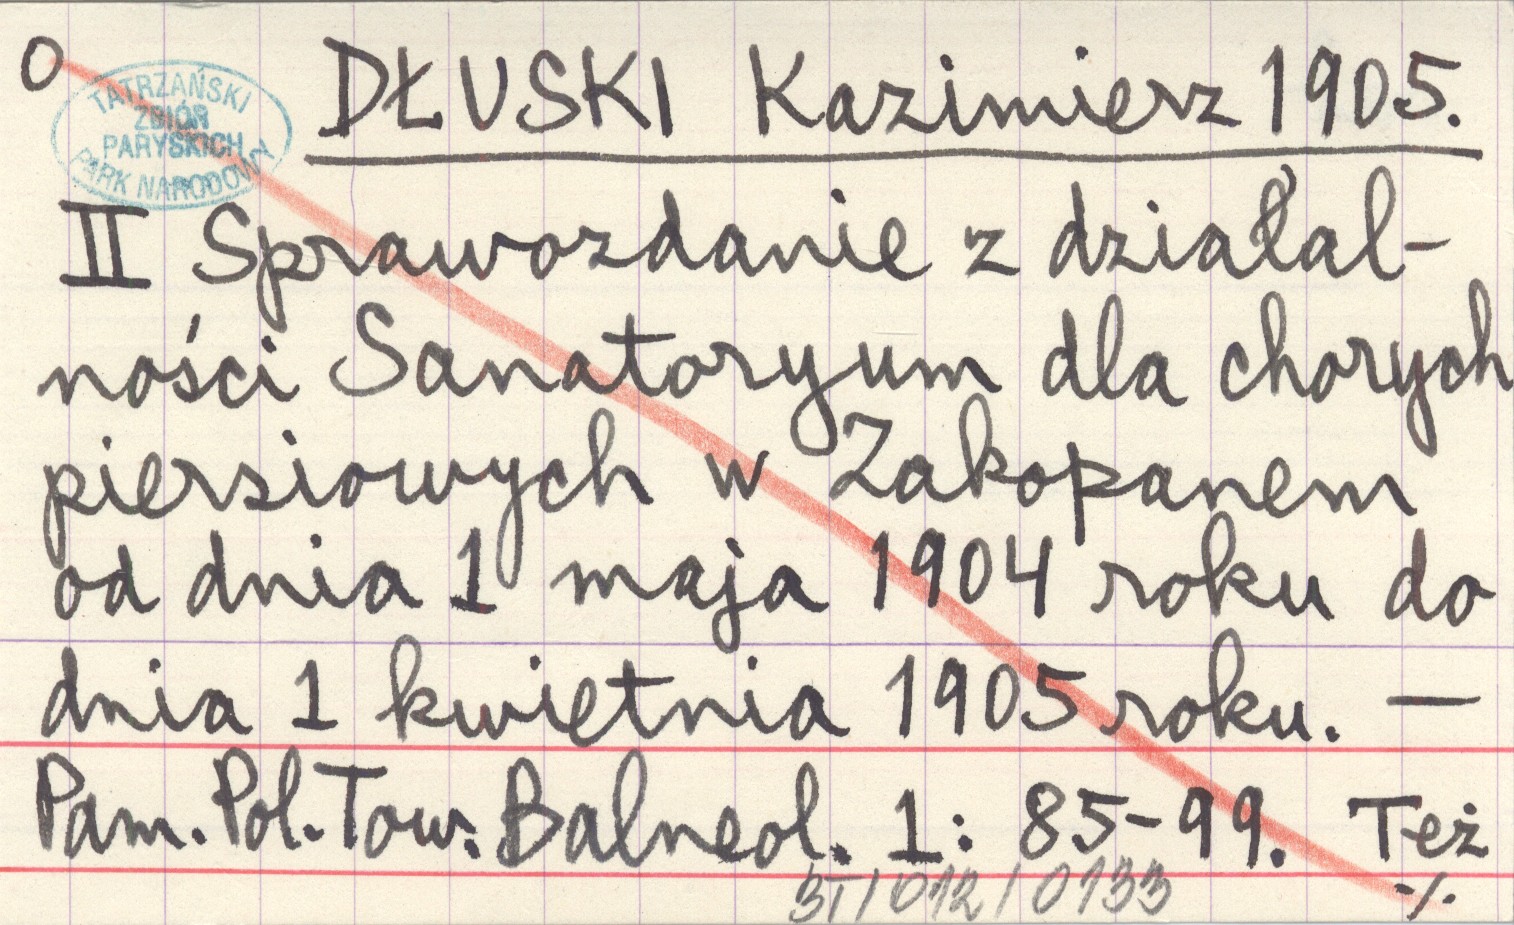 O
TATRZAŃSKI
ZBIÓR
PARYSKICH
PARK NARODOWY
DŁUSKI Kazimierz 1905.
II Sprawozdanie z działal-
ności Sanatoryum dla chorych
piersiowych w Zakopanem
od dnia 1 maja 1904 roku do
dnia 1 kwietnia 1905 roku. —
Pam. Pol. Tow. Balneol. 1: 85-99. Też
-/.
/012/0133